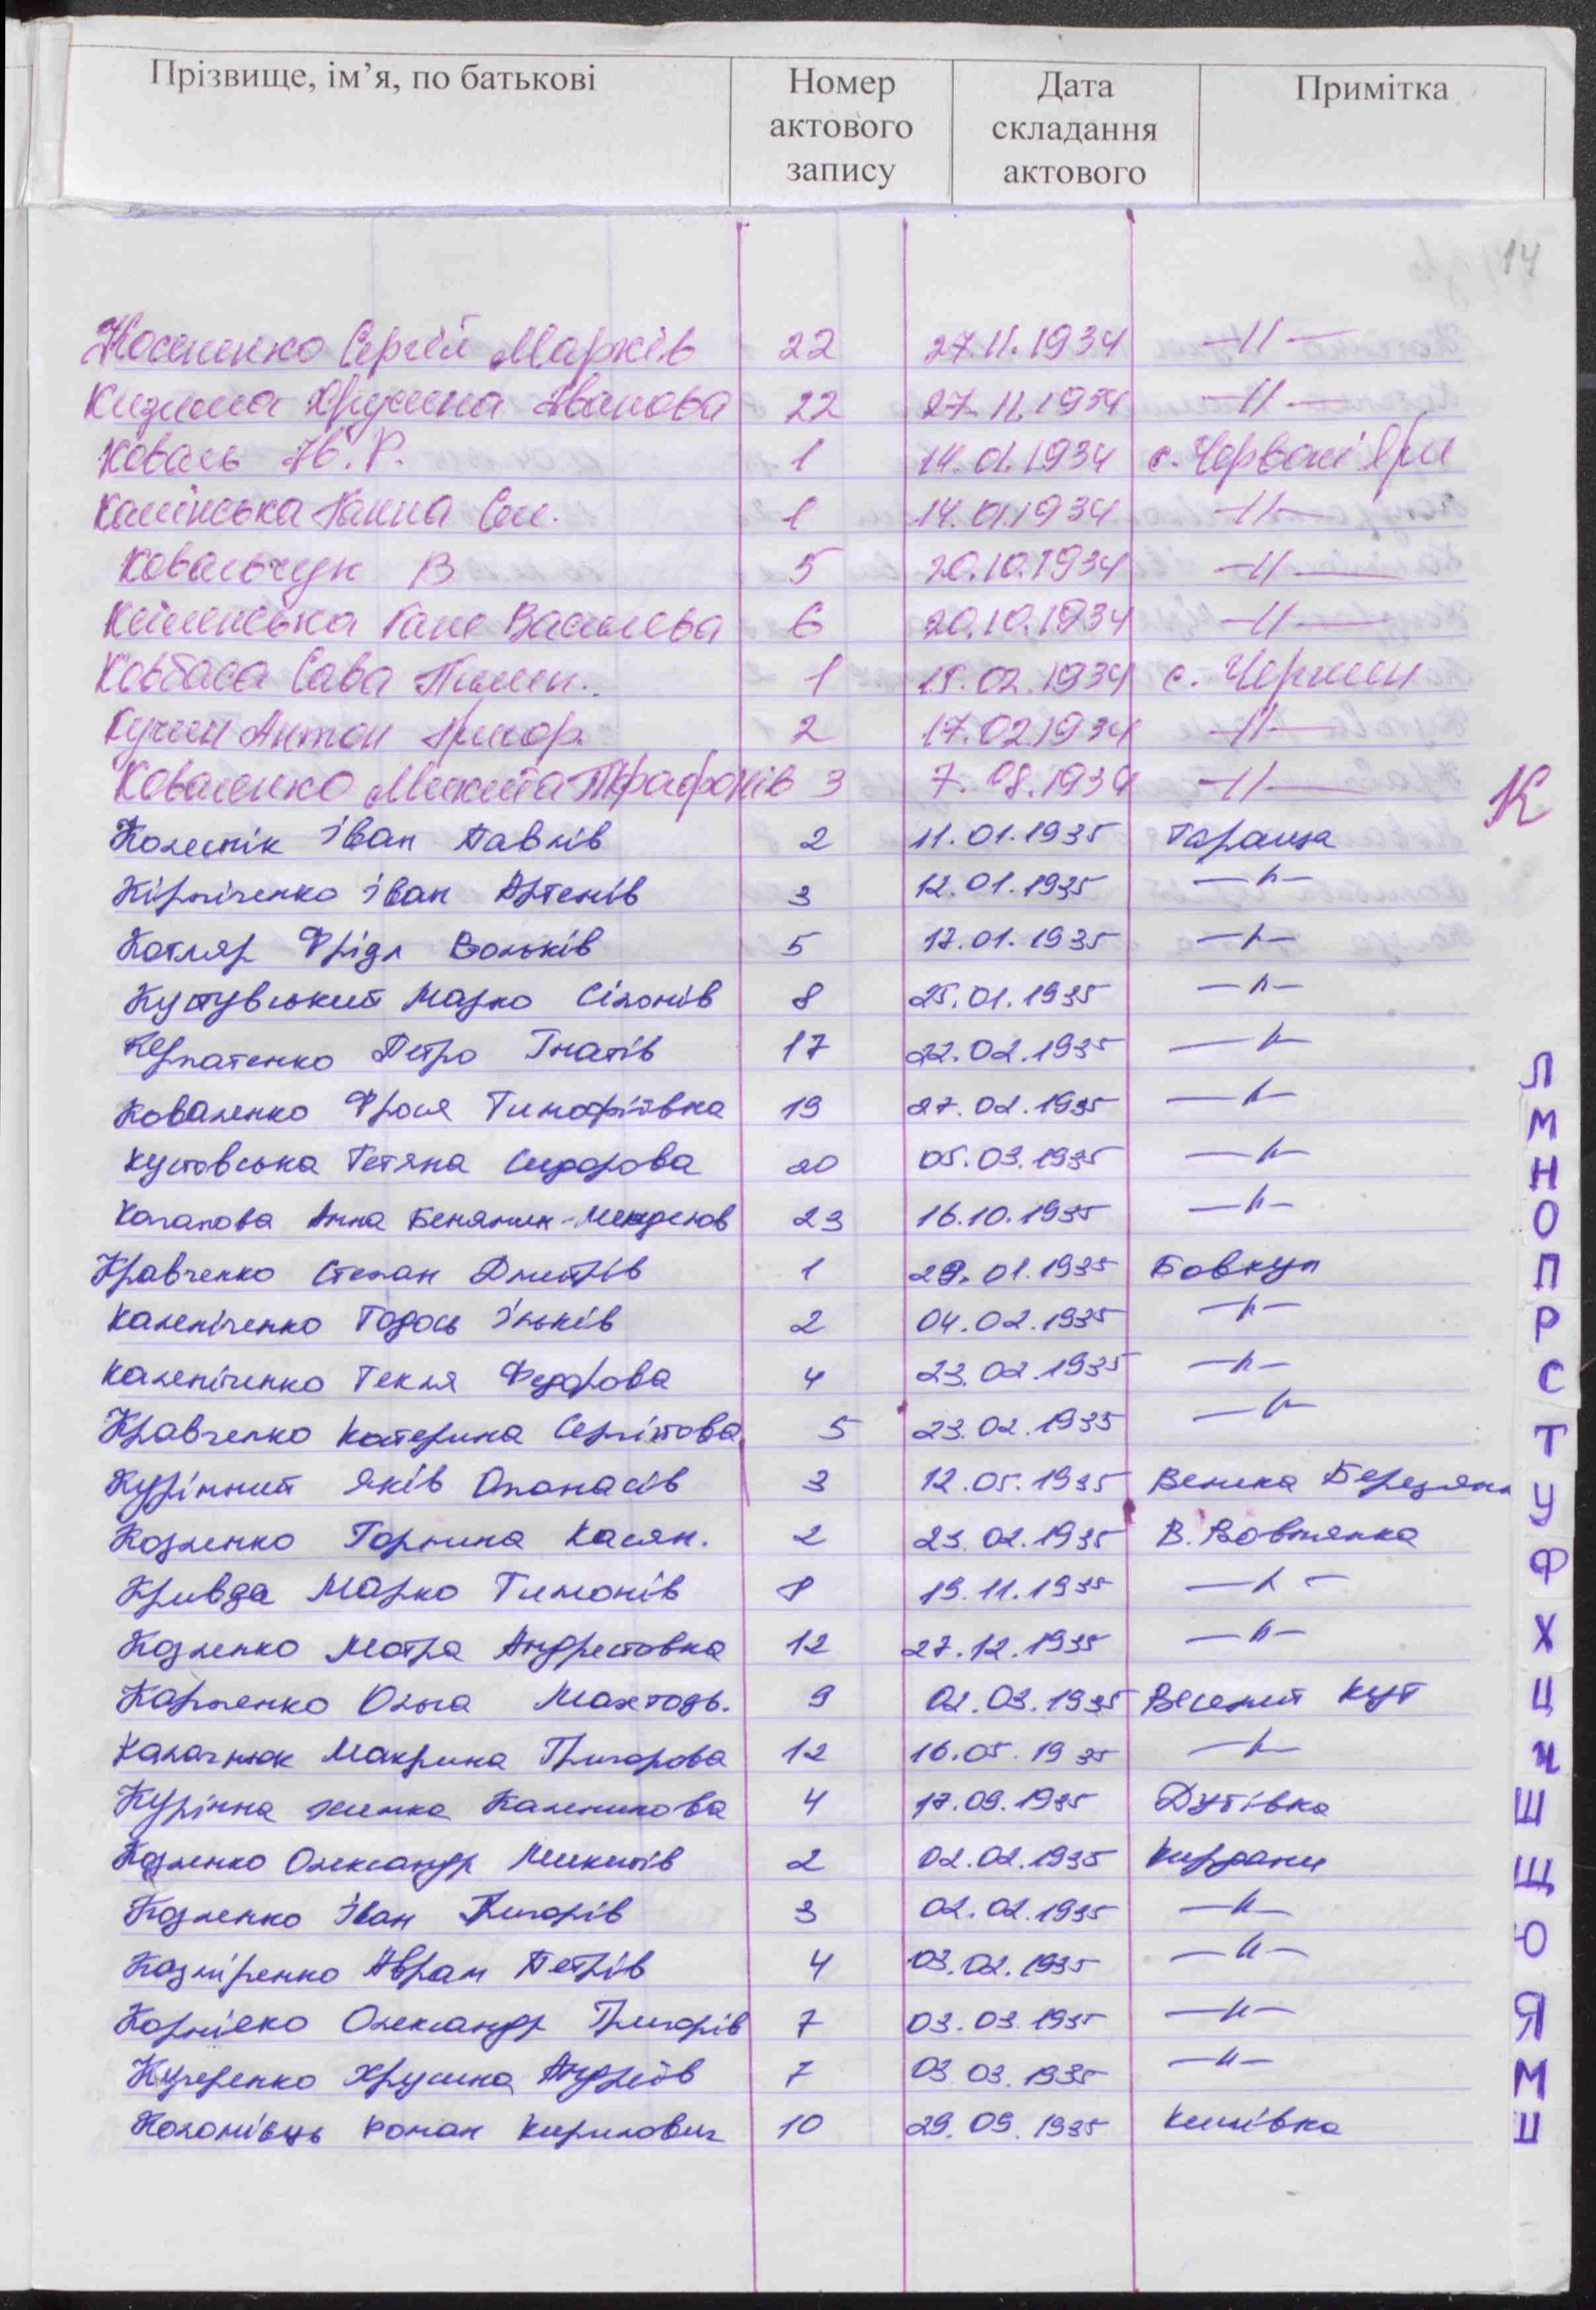 Прізвище, ім’я, по батькові Номер актового запису Дата складання актового Примітка
14
Косененко Сергій Марків 22 27.11.1934 -//-
Кизима Хрусина Іванова 22 27.11.1934 -//-
Коваль Ів. Р. 1 14.01.1934 с. Червоні Яри
Камінська Ганна Сем. 1 14.01.1934 -//-
Ковальчук В 5 20.10.1934 -//-
Кеіменська Гане Васильева 6 20.10.1934 -//-
Ковбаса Сава Пилип. 1 15.02.1934 с. Чернин
Кучин Антон Григор. 2 17.02.1934 -//-
Коваленко Микита Трафонів 3 7.08.1934 -//-
К
Колеснік Іван Павлів 2 11.01.1935 Тараща
Кірпіченко Іван Артемів 3 12.01.1935 -"-
Котляр Фрідл Вольків 5 17.01.1935 -"-
Кустувський Марко Сілонів 8 25.01.1935 -"-
Керпатенко Петро Гнатів 17 22.02.1935 -"-
Коваленко Фрося Тимофіївна 19 27.02.1935 -"-
Кустовська Тетяна Сидорова 20 05.03.1935 -"-
Каганова Анна Бенямин-Менделов 23 16.10.1935 -"-
Кравченко Степан Дмитрів 1 29.01.1935 Бовкун
Каленіченко Тодось Ільків 2 04.02.1935 -"-
Каленіченко Текля Федорова 4 23.02.1935 -"-
Кравченко Катерина Сергійова 5 23.02.1935 -"-
Курінний Яків Опанасів 3 12.05.1935 Велика Березянк
Козленко Горпина Касян. 2 23.02.1935 В. Вовнянка
Кривда Марко Тимонів 8 19.11.1935 -"-
Козленко Мотра Андреєовна 12 27.12.1935 -"-
Карпенко Ольга Махтодь. 9 02.03.1935 Веселий Кут
Калачнюк Макрина Григорова 12 16.05.1935 -"-
Курінна химка Каленикова 4 17.09.1935 Дубівка
Козленко Олександр Микитів 2 02.02.1935 Кирдани
Козленко Іван Григорів 3 02.02.1935 -"-
Казміренко Аврам Петрів 4 03.02.1935 -"-
Корнієко Олександр Григорів 7 03.03.1935 -"-
Кучеренко Хрусина Андріїв 7 03.03.1935 -"-
Коломієць Роман Кирилович 10 29.09.1935 Кишівка
Л
М
Н
О
П
Р
С
Т
У
Ф
Х
Ц
Ч
Ш
Щ
Ю
Я
М
Ш